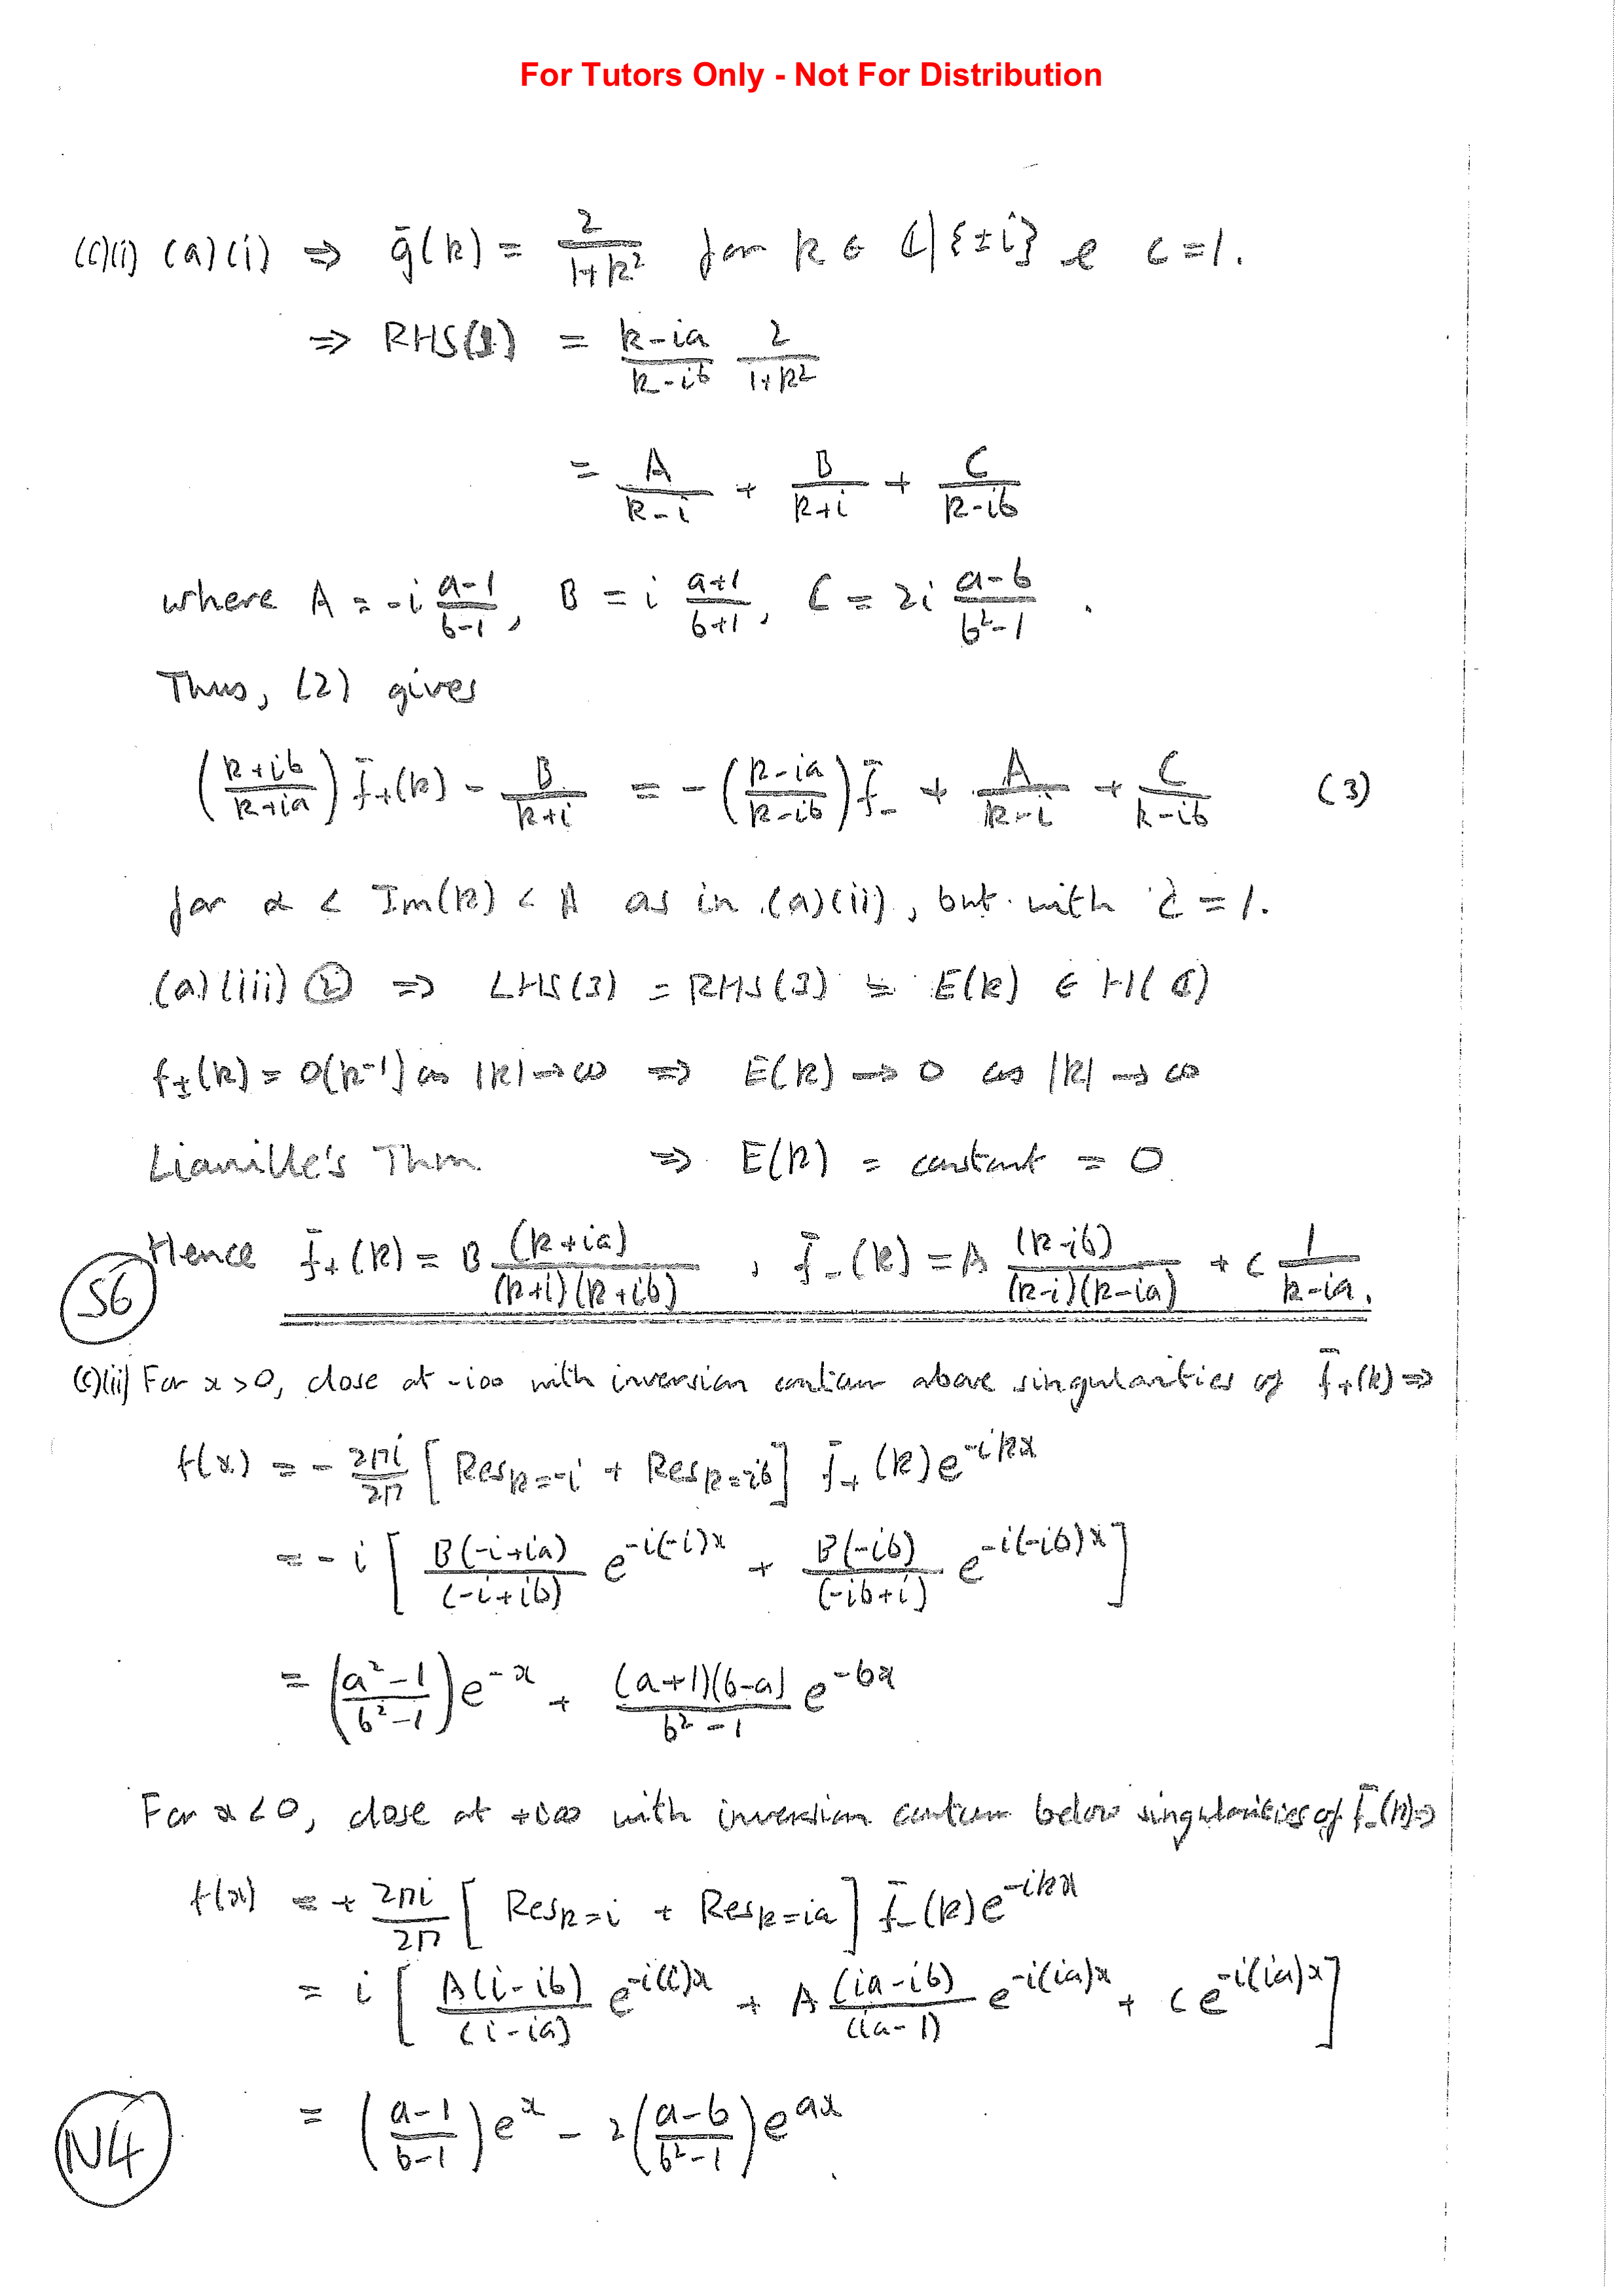 For Tutors Only - Not For Distribution
(c)(i) (a)(i) ⇒ ḡ(k) = 2/(1+k²) for k ∈ ℂ\{±i} & c=1.
⇒ RHS(1) = (k-ia)/(k-ib) 2/(1+k²)
= A/(k-i) + B/(k+i) + C/(k-ib)
where A = -i (a-1)/(b-1), B = i (a+1)/(b+1), C = 2i (a-b)/(b²-1).
Thus, (2) gives
((k+ib)/(k+ia)) f̄₊(k) - B/(k+i) = -((k-ia)/(k-ib)) f̄₋ + A/(k-i) + C/(k-ib) (3)
for α < Im(k) < A as in (a)(ii), but with c = 1.
(a)(iii) ② ⇒ LHS(3) = RHS(3) = E(k) ∈ H(ℂ)
f±(k) = O(k⁻¹) as |k|→∞ ⇒ E(k) → 0 as |k| → ∞
Liouville's Thm ⇒ E(k) = constant = 0
Hence f̄₊(k) = B (k+ia)/((k+i)(k+ib)), f̄₋(k) = A (k-ib)/((k-i)(k-ia)) + C 1/(k-ia).
S6
(c)(ii) For x>0, close at -i∞ with inversion contour above singularities of f̄₊(k) ⇒
f(x) = - 2πi/2π [Res k=-i + Res k=-ib] f̄₊(k)e^{-ikx}
= -i [ B(-i+ia)/(-i+ib) e^{-i(-i)x} + B(-ib)/(-ib+i) e^{-i(-ib)x} ]
= ((a²-1)/(b²-1)) e^{-x} + (a+1)(b-a)/(b²-1) e^{-bx}
For x<0, close at +i∞ with inversion contour below singularities of f̄₋(k) ⇒
f(x) = + 2πi/2π [ Res k=i + Res k=ia ] f̄₋(k)e^{-ikx}
= i [ A(i-ib)/(i-ia) e^{-i(i)x} + A (ia-ib)/(ia-1) e^{-i(ia)x} + C e^{-i(ia)x} ]
N4
= ((a-1)/(b-1)) e^{x} - 2((a-b)/(b²-1)) e^{ax}